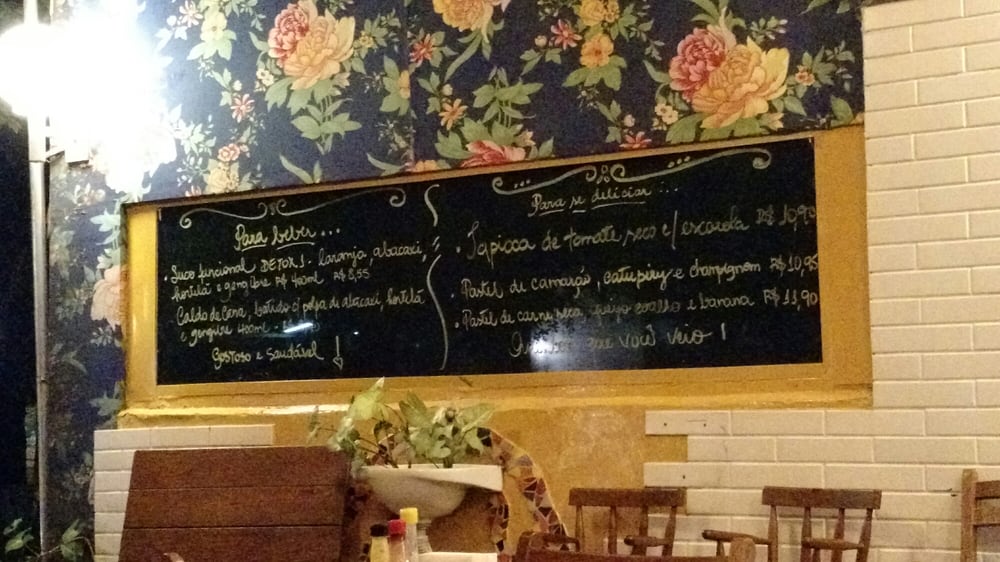 Para beber...
• Suco funcional DETOX 1. laranja, abacaxi,
hortelã e gengibre P/ 400ml R$ 8,55
Caldo de Cana, batido c/ polpa de abacaxi, hortelã
e gengibre 400ml -
Gostoso e Saudável !
Para se deliciar...
• Tapioca de tomate seco c/ escarola R$ 10,90
• Pastel de camarão, catupiry e champignom R$ 10,95
• Pastel de carne seca, queijo coalho e banana R$ 11,90
que você veio !